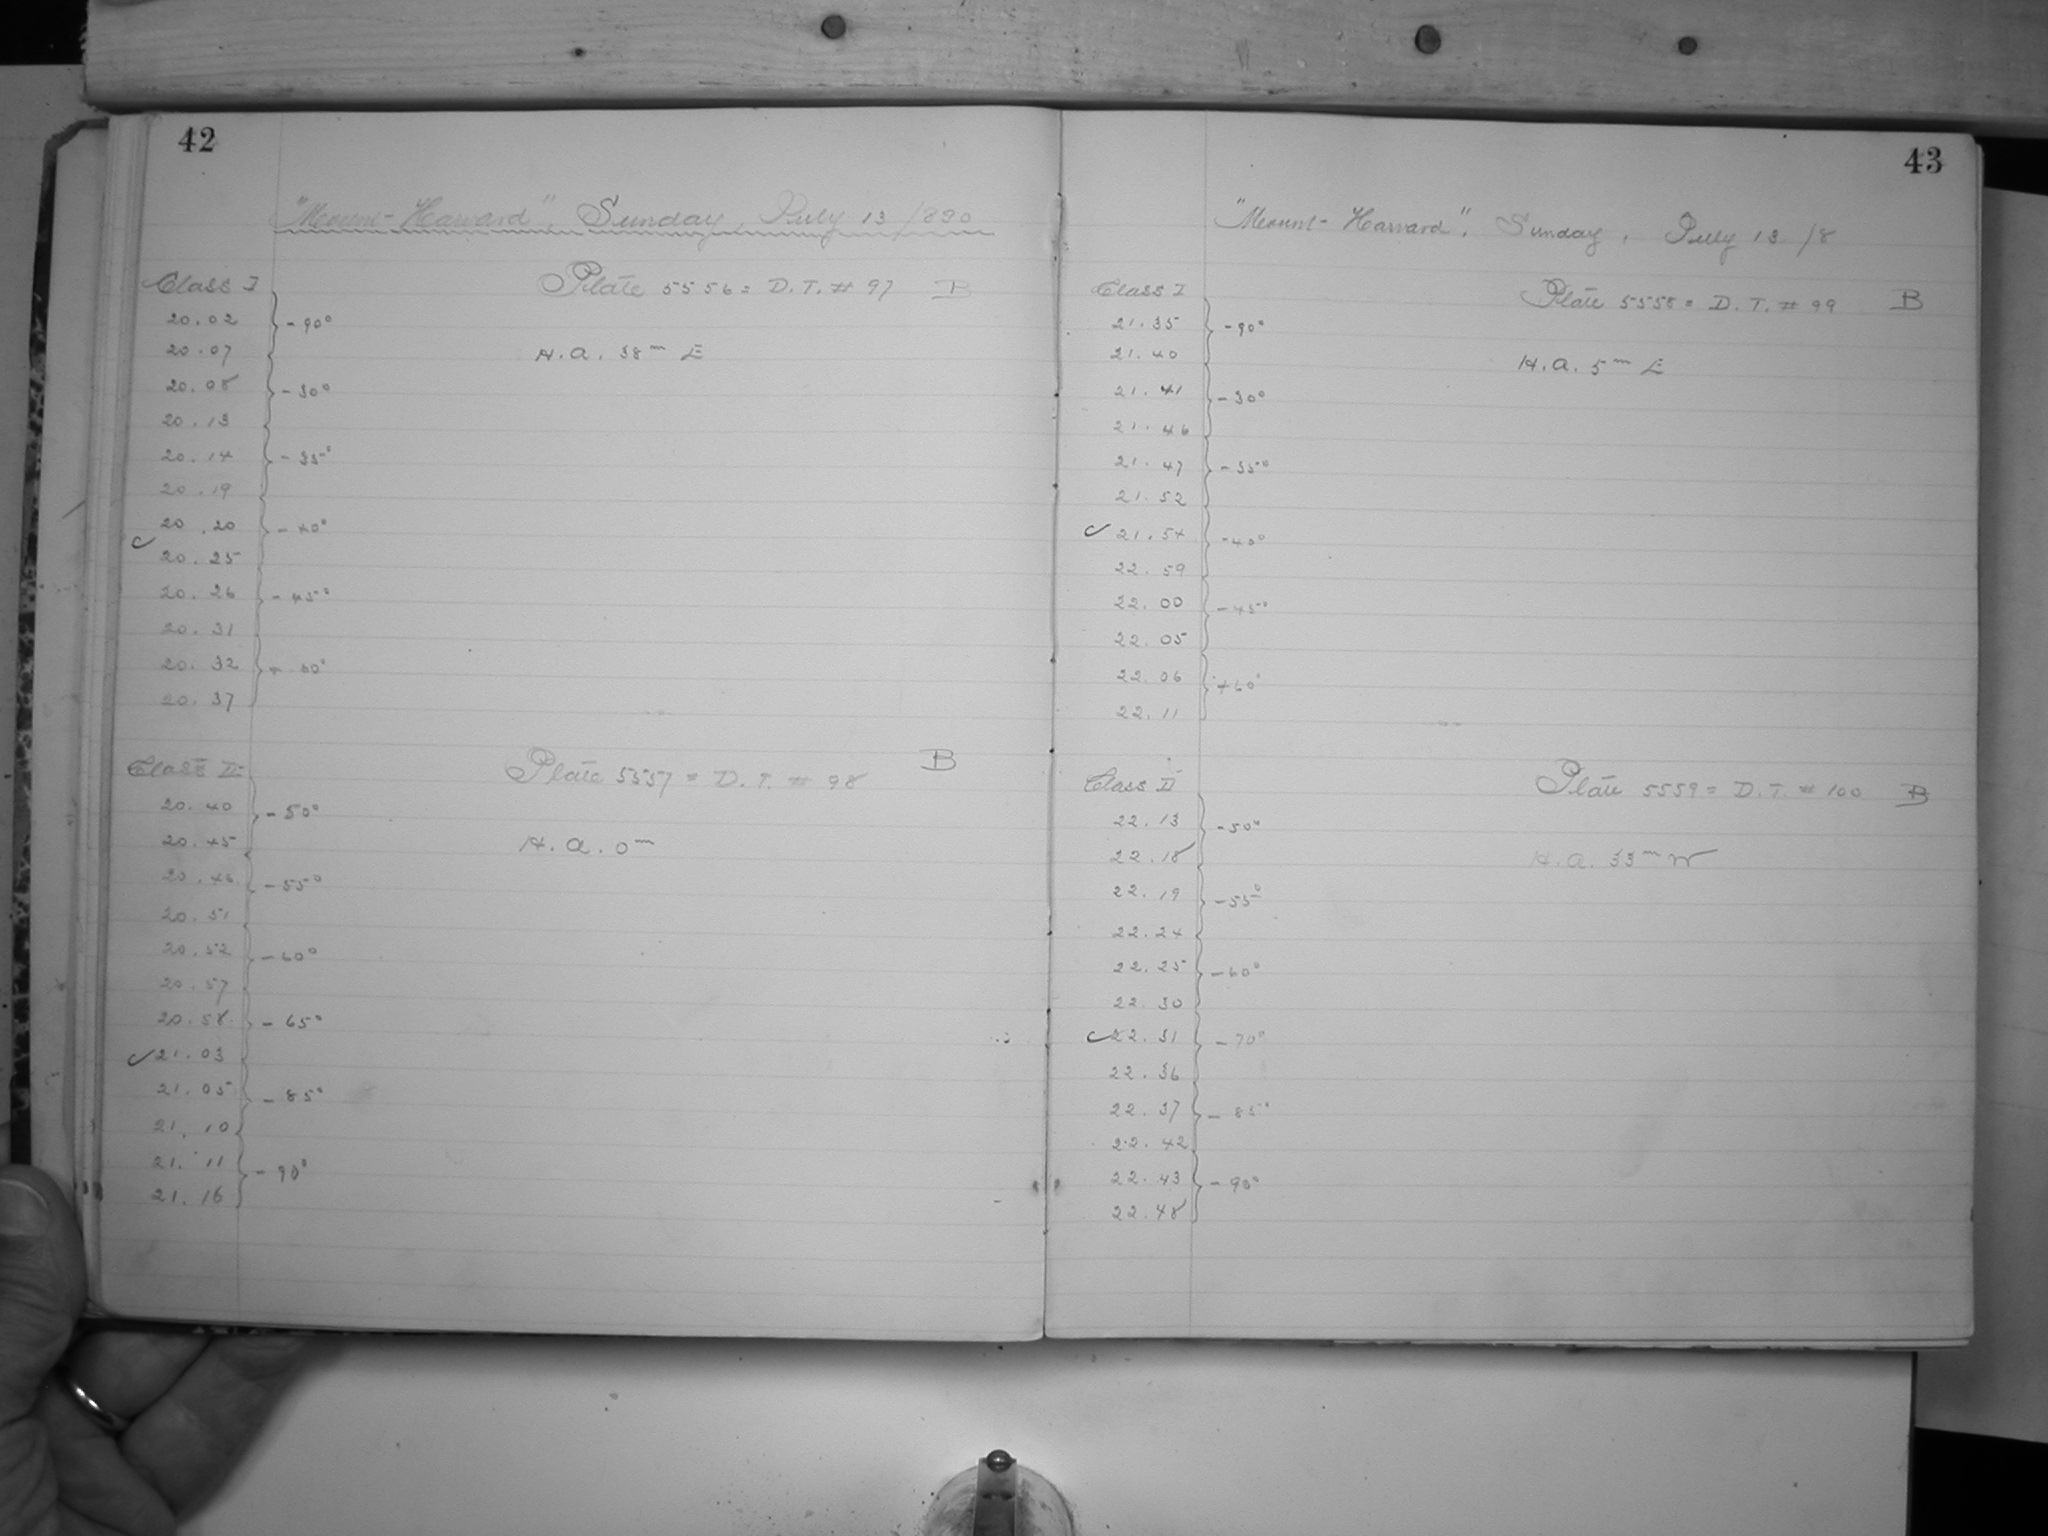 42
"Mount-Harvard", Sunday, July 13/890
Class I Plate 5556 = D.T. # 97 B
20.02 -90°
20.07 H.A. 38m E
20.08 -30°
20.13
20.14 -35°
20.19
20.20 -40°
20.25
20.26 -45°
20.31
20.32
20.37
Class II Plate 5557 = D.T. # 98 B
20.40 -50°
20.45 H.A. 0m
20.46 -55°
20.51
20.52 -60°
20.57
20.58 -65°
✓ 21.03
21.05 -85°
21.10
21.11 -90°
21.16
43
"Mount-Harvard", Sunday, July 13/8
Class I Plate 5558 = D.T. # 99 B
21.35 -90°
21.40 H.A. 5m E
21.41 -30°
21.46
21.47 -35°
21.52
✓ 21.54 -40°
22.59
22.00 -45°
22.05
22.06
22.11
Class II Plate 5559 = D.T. # 100 B
22.13 -50°
22.18 H.A. 33m W
22.19 -55°
22.24
22.25 -60°
22.30
✓ 22.31 -70°
22.36
22.37 -85°
22.42
22.43 -90°
22.48